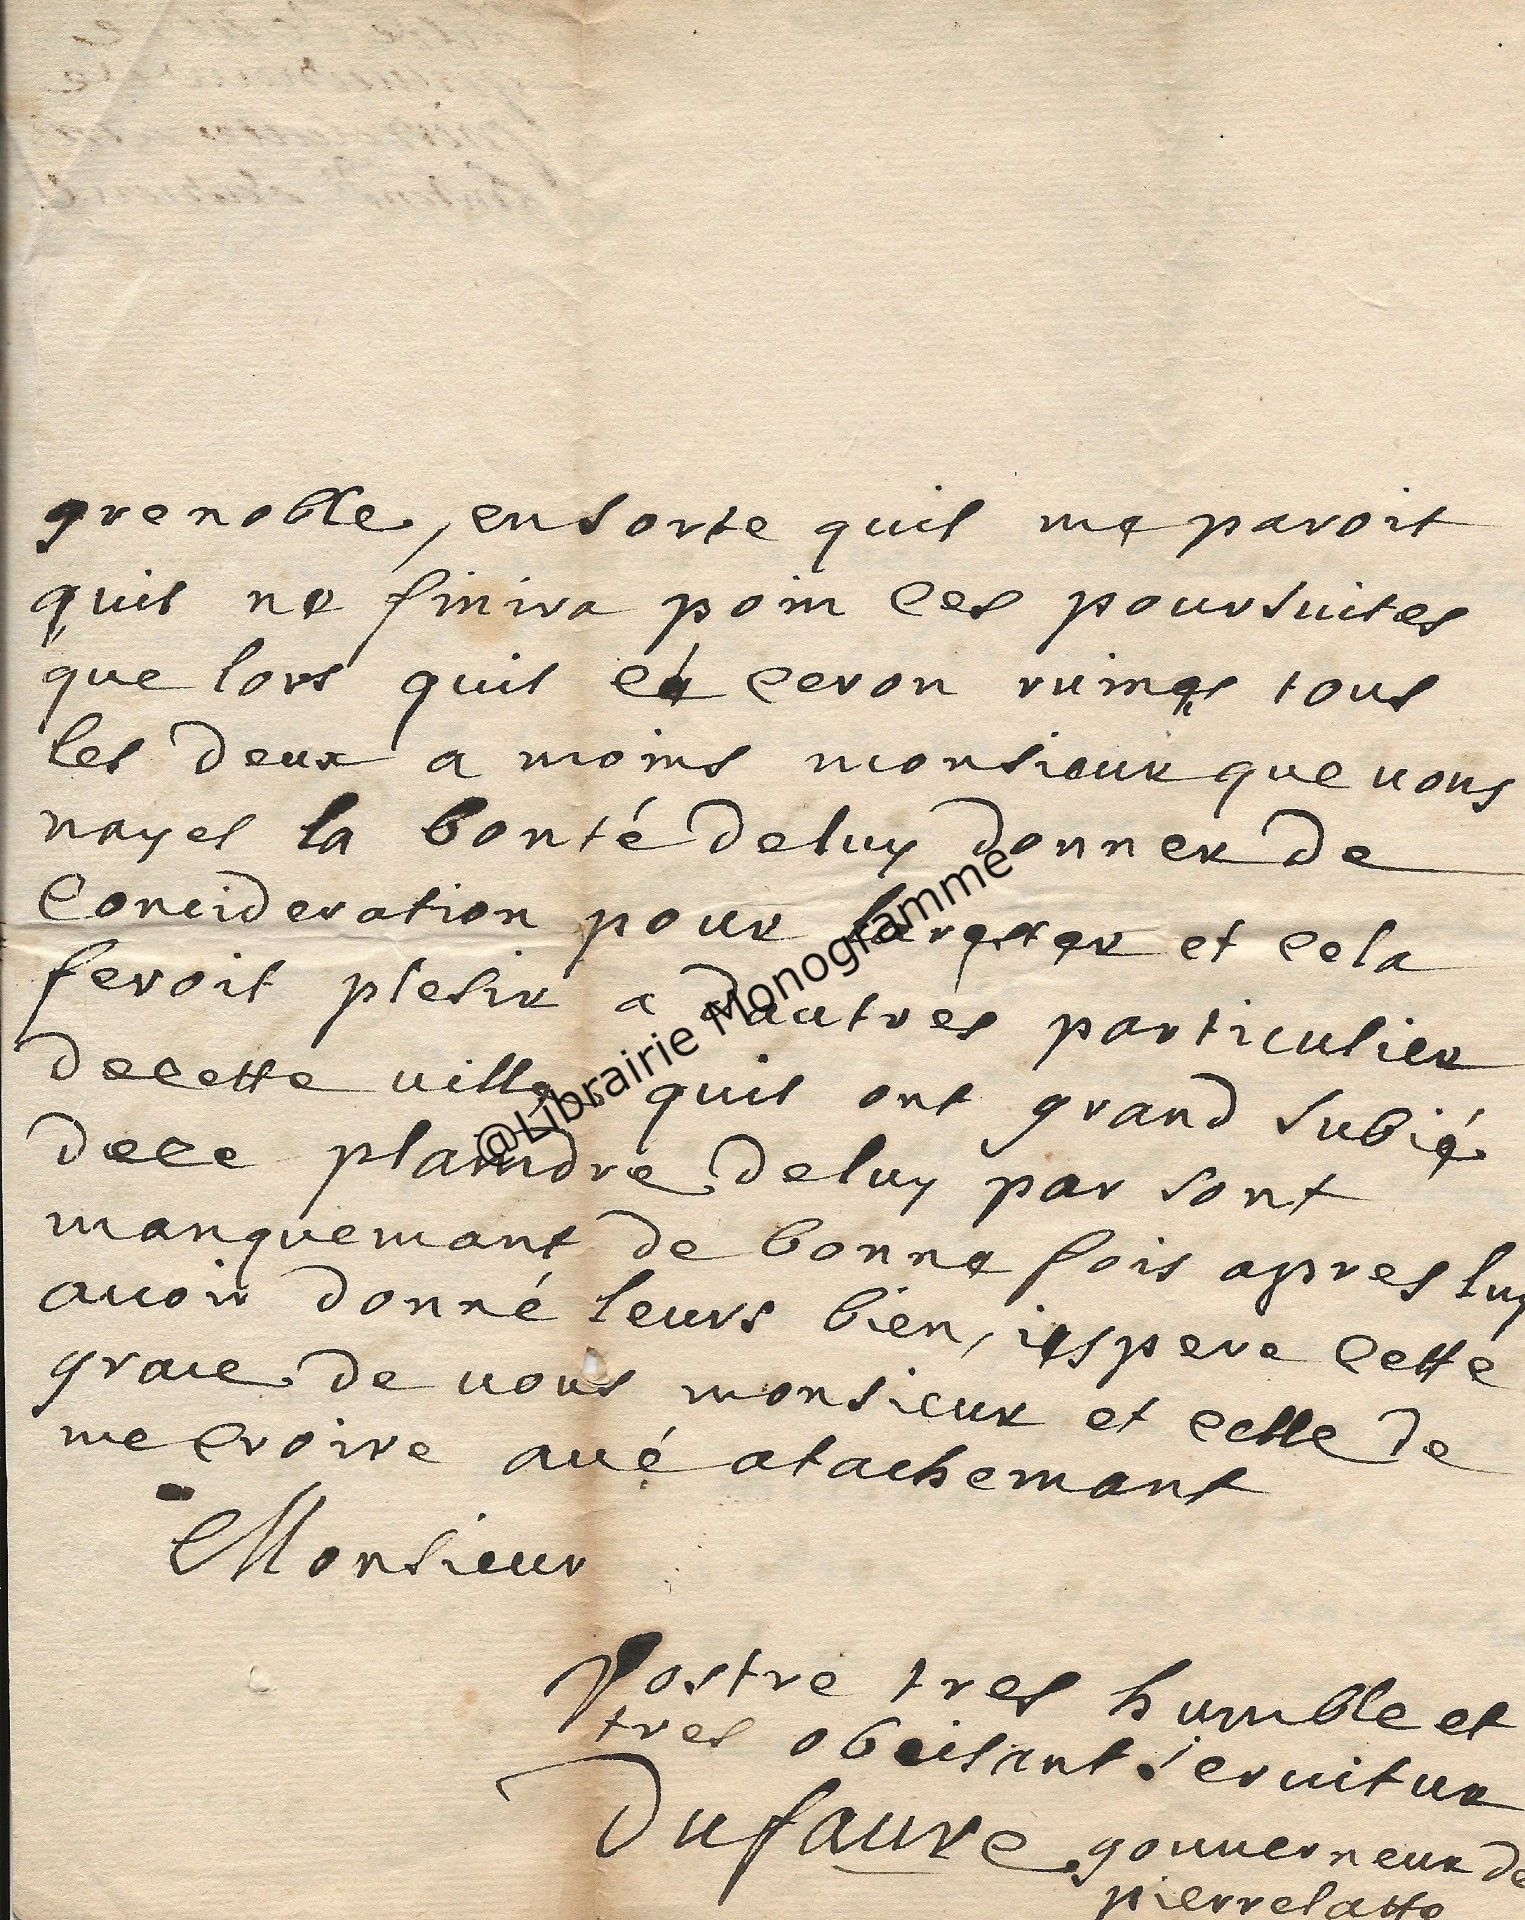 grenoble, ensorte quil me paroit
quil ne finira poin ces poursuites
que lors quil ceron ruines tous
les deux a moins monsieur que vous
nayes la bonté deluy donner de
concideration pour larester et cela
feroit plesir a dautres particulier
decette ville quil ont grand subié
dece plaindre deluy par sont
manquemant de bonne fois apres luy
avoir donné leurs bien, iespere cette
grace de vous monsieur et celle de
me croire avé atachemant
Monsieur
Vostre tres humble et
tres obeisant serviteur
Dufaure gouverneur de
pierrelatte
@Librairie Monogramme